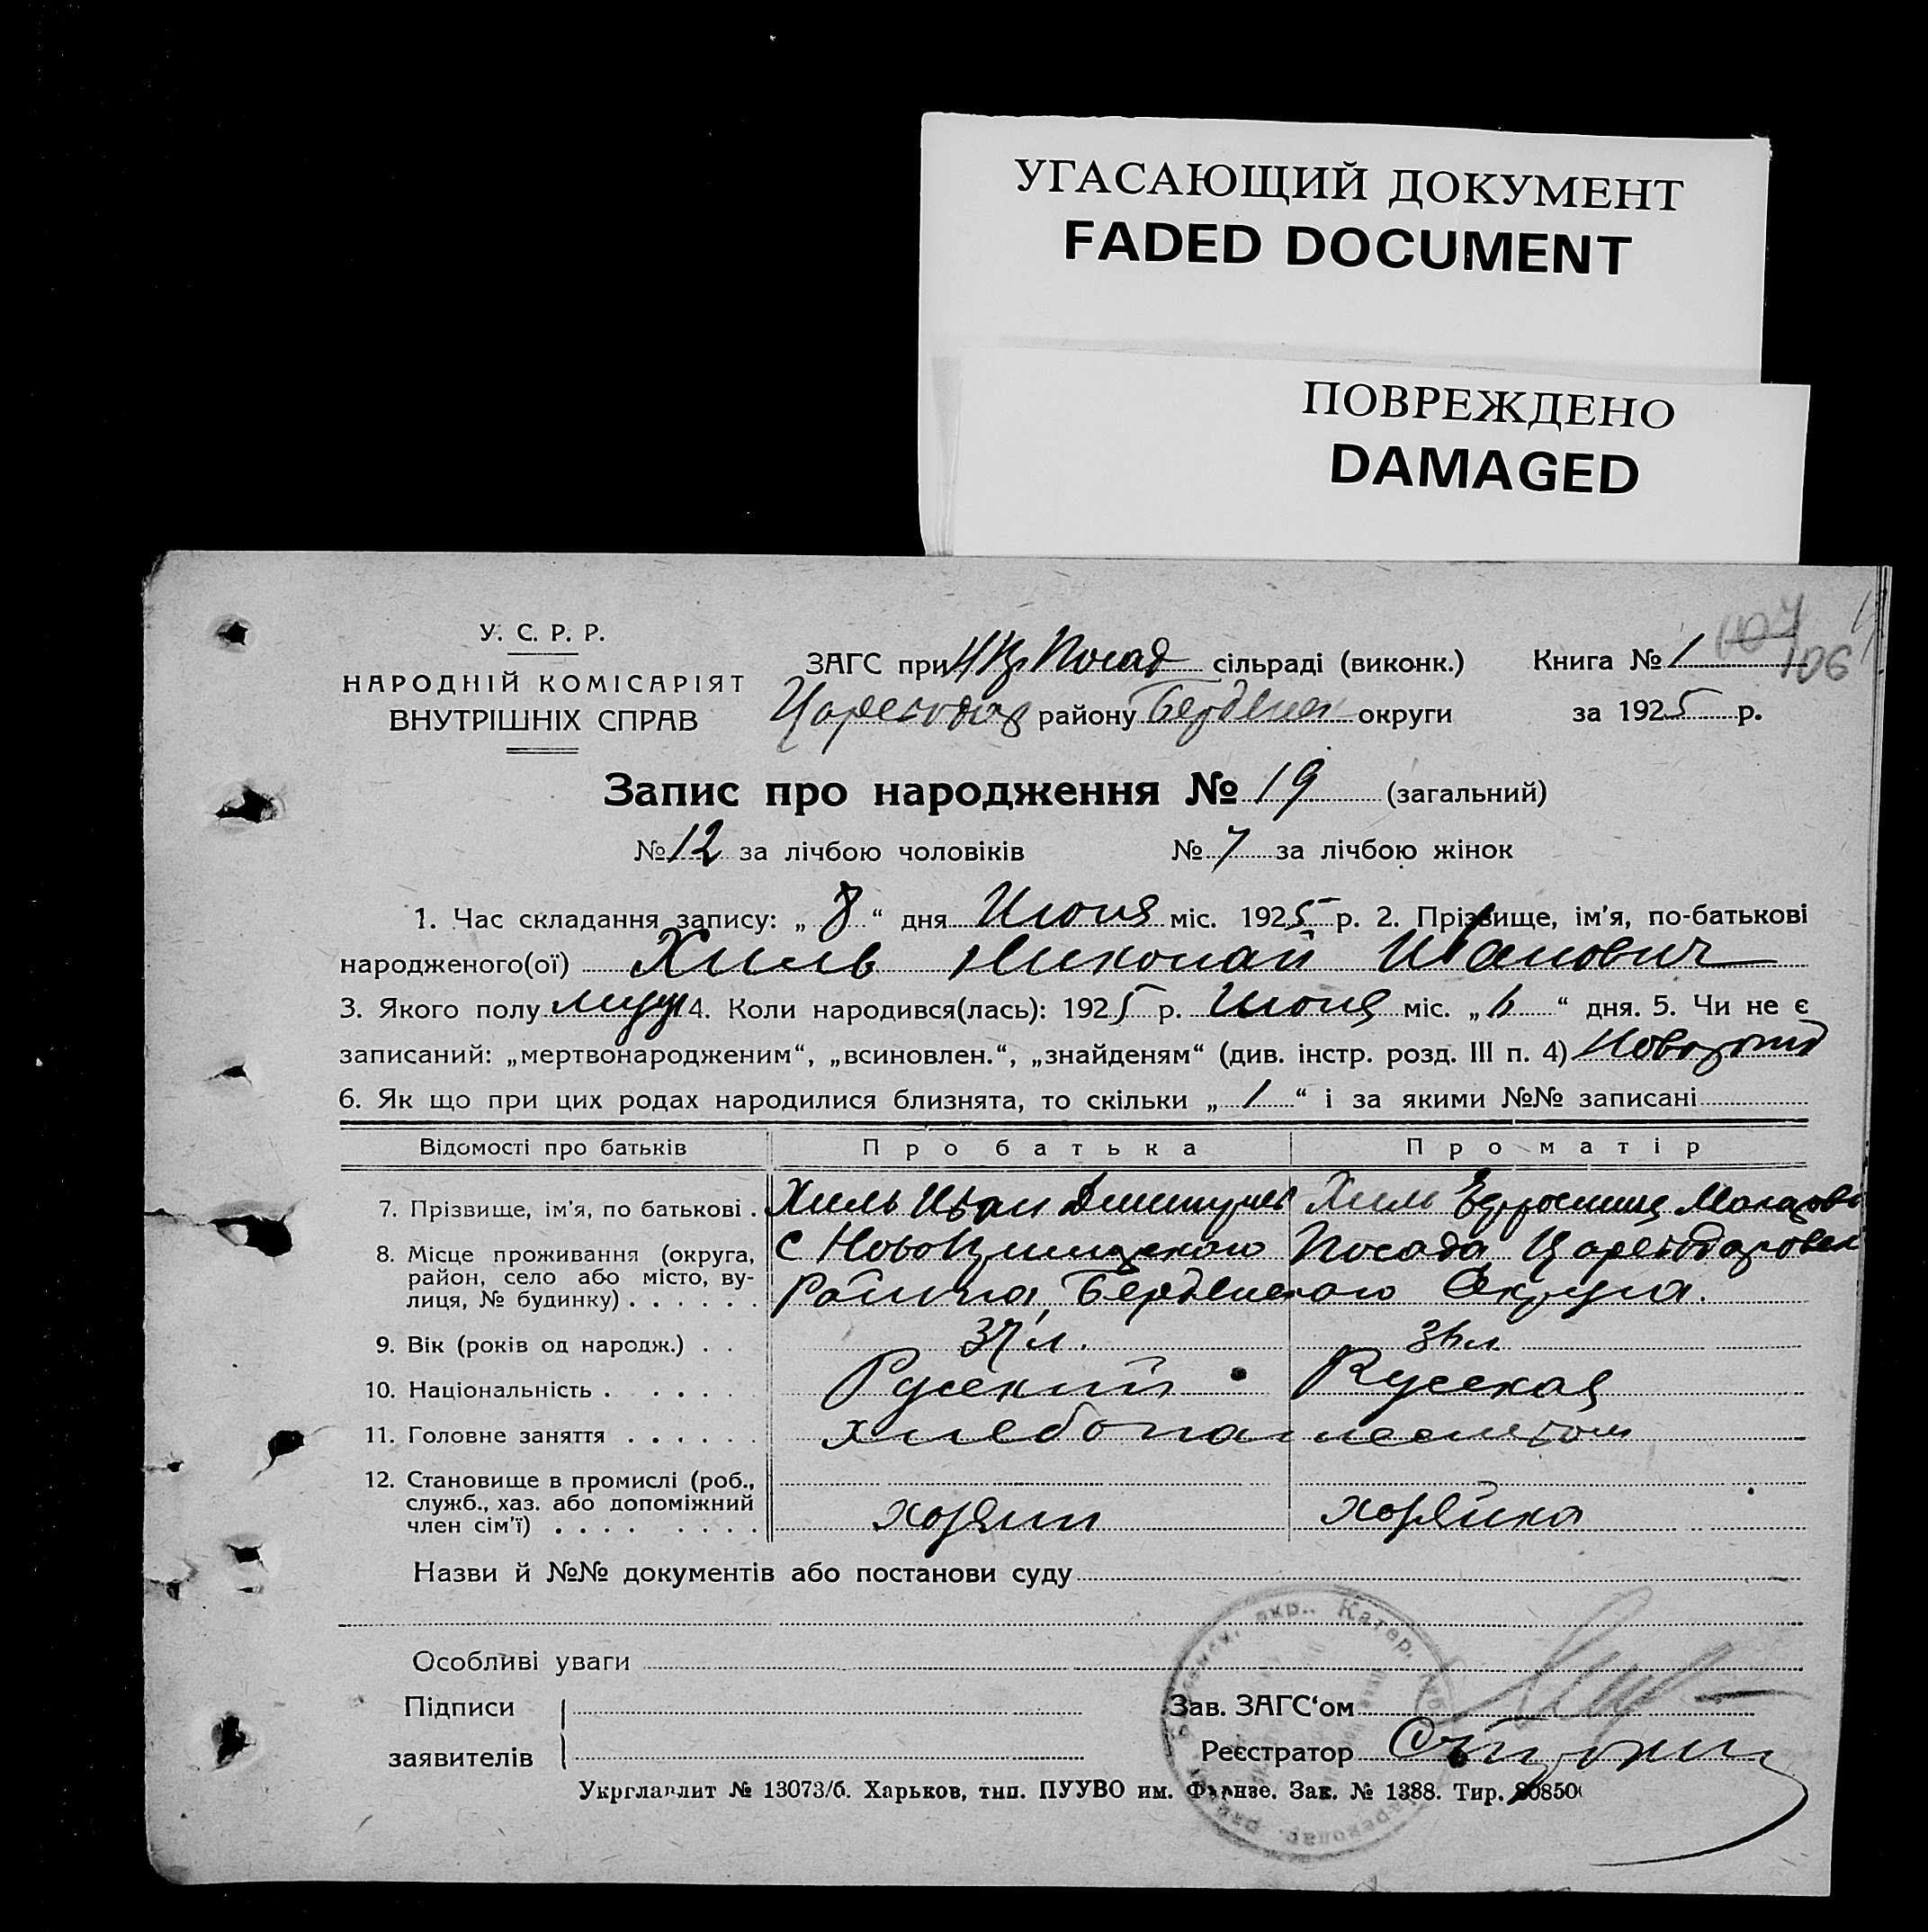 УГАСАЮЩИЙ ДОКУМЕНТ
FADED DOCUMENT
ПОВРЕЖДЕНО
DAMAGED
У. С. Р. Р.
НАРОДНІЙ КОМІСАРІЯТ
ВНУТРІШНІХ СПРАВ
ЗАГС при Посад сільраді (виконк.)
району округи
Книга № 1
106
за 1925 р.
Запис про народження № 19 (загальний)
№ 12 за лічбою чоловіків № 7 за лічбою жінок
1. Час складання запису: „ 8 “ дня Июня міс. 1925 р. 2. Прізвище, ім’я, по-батькові
народженого(ої) Хиль Николай Иванович
3. Якого полу муж 4. Коли народився(лась): 1925 р. Июня міс. „ 6 “ дня. 5. Чи не є
записаний: „мертвонародженим“, „всиновлен.“, „знайденям“ (див. інстр. розд. III п. 4)
6. Як що при цих родах народилися близнята, то скільки „ 1 “ і за якими №№ записані
Відомості про батьків Про батька Про матір
7. Прізвище, ім’я, по батькові . Хиль Иван Хиль Ефросиния
8. Місце проживання (округа, район, село або місто, вулиця, № будинку) . . . . . . С Посада
Района, Округа.
9. Вік (років од народж.) . . 37 л. 36 л
10. Національність . . . . . . Русский Русская
11. Головне заняття . . . . . . хлебопа
12. Становище в промислі (роб., служб., хаз. або допоміжний член сім’ї) . . . . . . . . хозяин хозяйка
Назви й №№ документів або постанови суду
Особливі уваги
Підписи
заявителів
Зав. ЗАГС‘ом
Реєстратор
Укрглавлит № 13073/б. Харьков, тип. ПУУВО им. Фрунзе. Зак. № 1388. Тир.